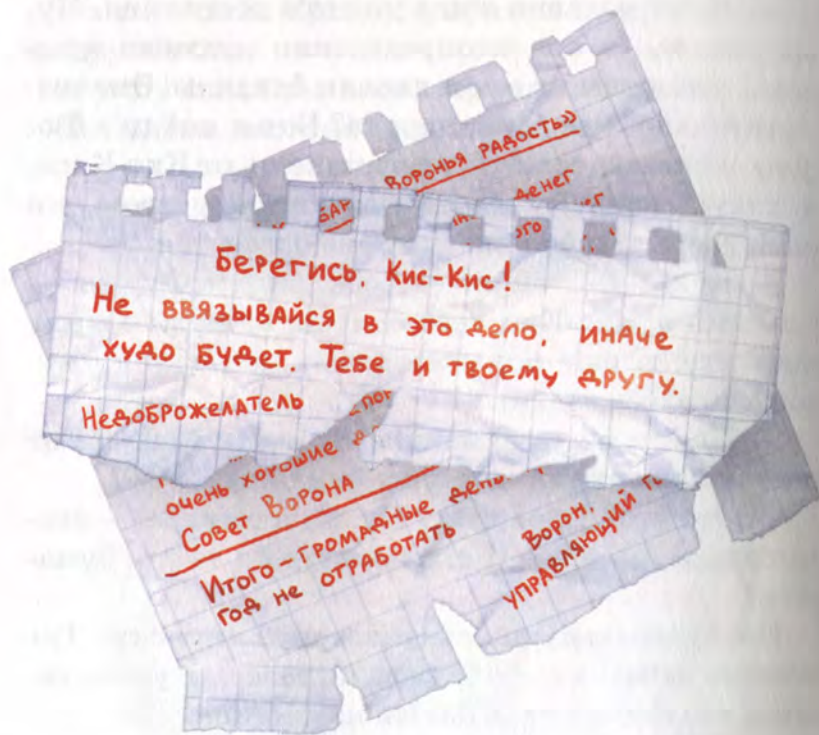 ВОРОНЬЯ РАДОСТЬ»
ДЕНЕГ
ЭТО
БЕРЕГИСЬ, КИС-КИС!
НЕ ВВЯЗЫВАЙСЯ В ЭТО ДЕЛО, ИНАЧЕ
ХУДО БУДЕТ. ТЕБЕ И ТВОЕМУ ДРУГУ.
НЕДОБРОЖЕЛАТЕЛЬ
ОЧЕНЬ ХОРОШИЕ
СОВЕТ ВОРОНА
ИТОГО – ГРОМАДНЫЕ
ГОД НЕ ОТРАБОТАТЬ
ВОРОН,
УПРАВЛЯЮЩИЙ